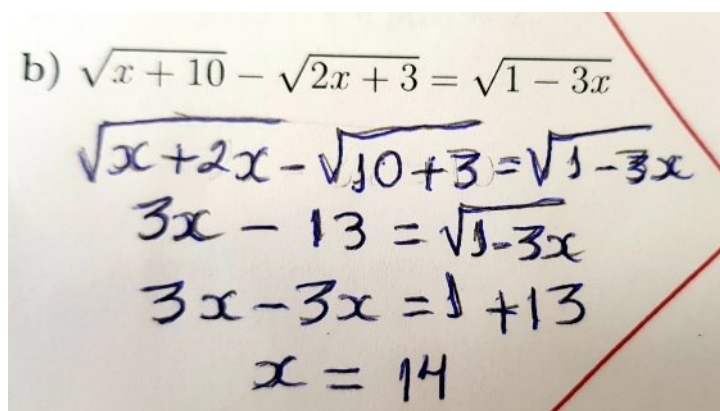 b) √(x + 10) − √(2x + 3) = √(1 − 3x)
√(x+2x) - √(10+3) = √(1-3)x
3x - 13 = √(1-3)x
3x - 3x = 1 + 13
x = 14